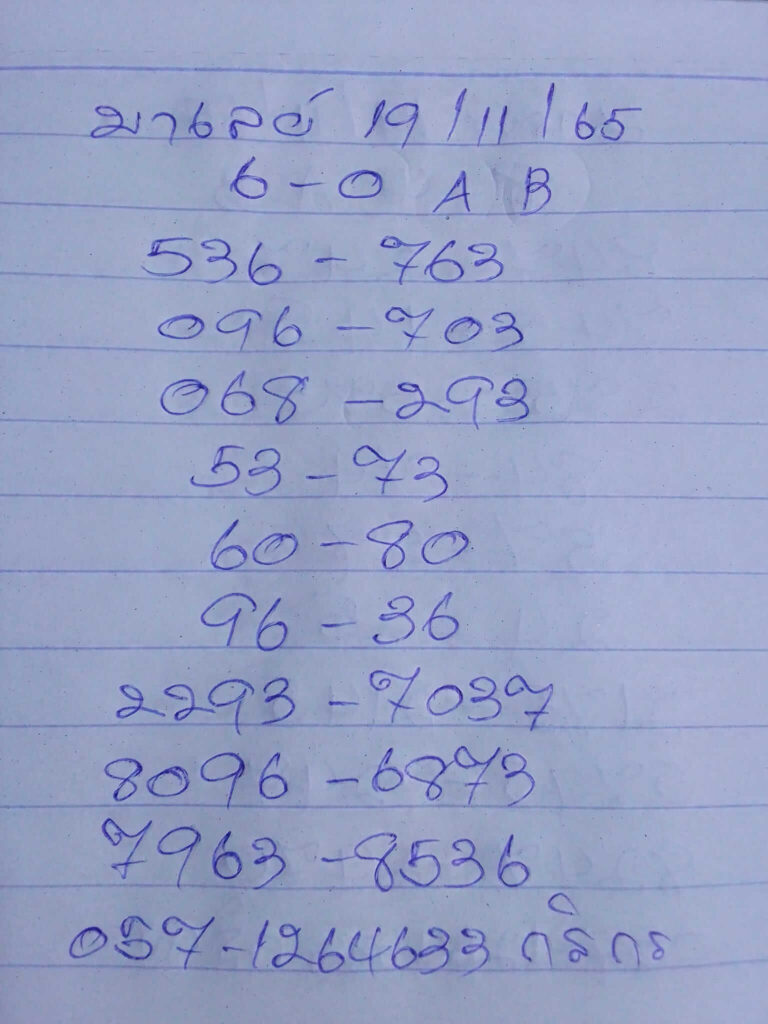 มาเลย์ 19/11/65
6-0 A B
536-763
096-703
068-293
53-73
60-80
96-36
2293-7037
8096-6873
7963-8536
057-1264633 กริกร